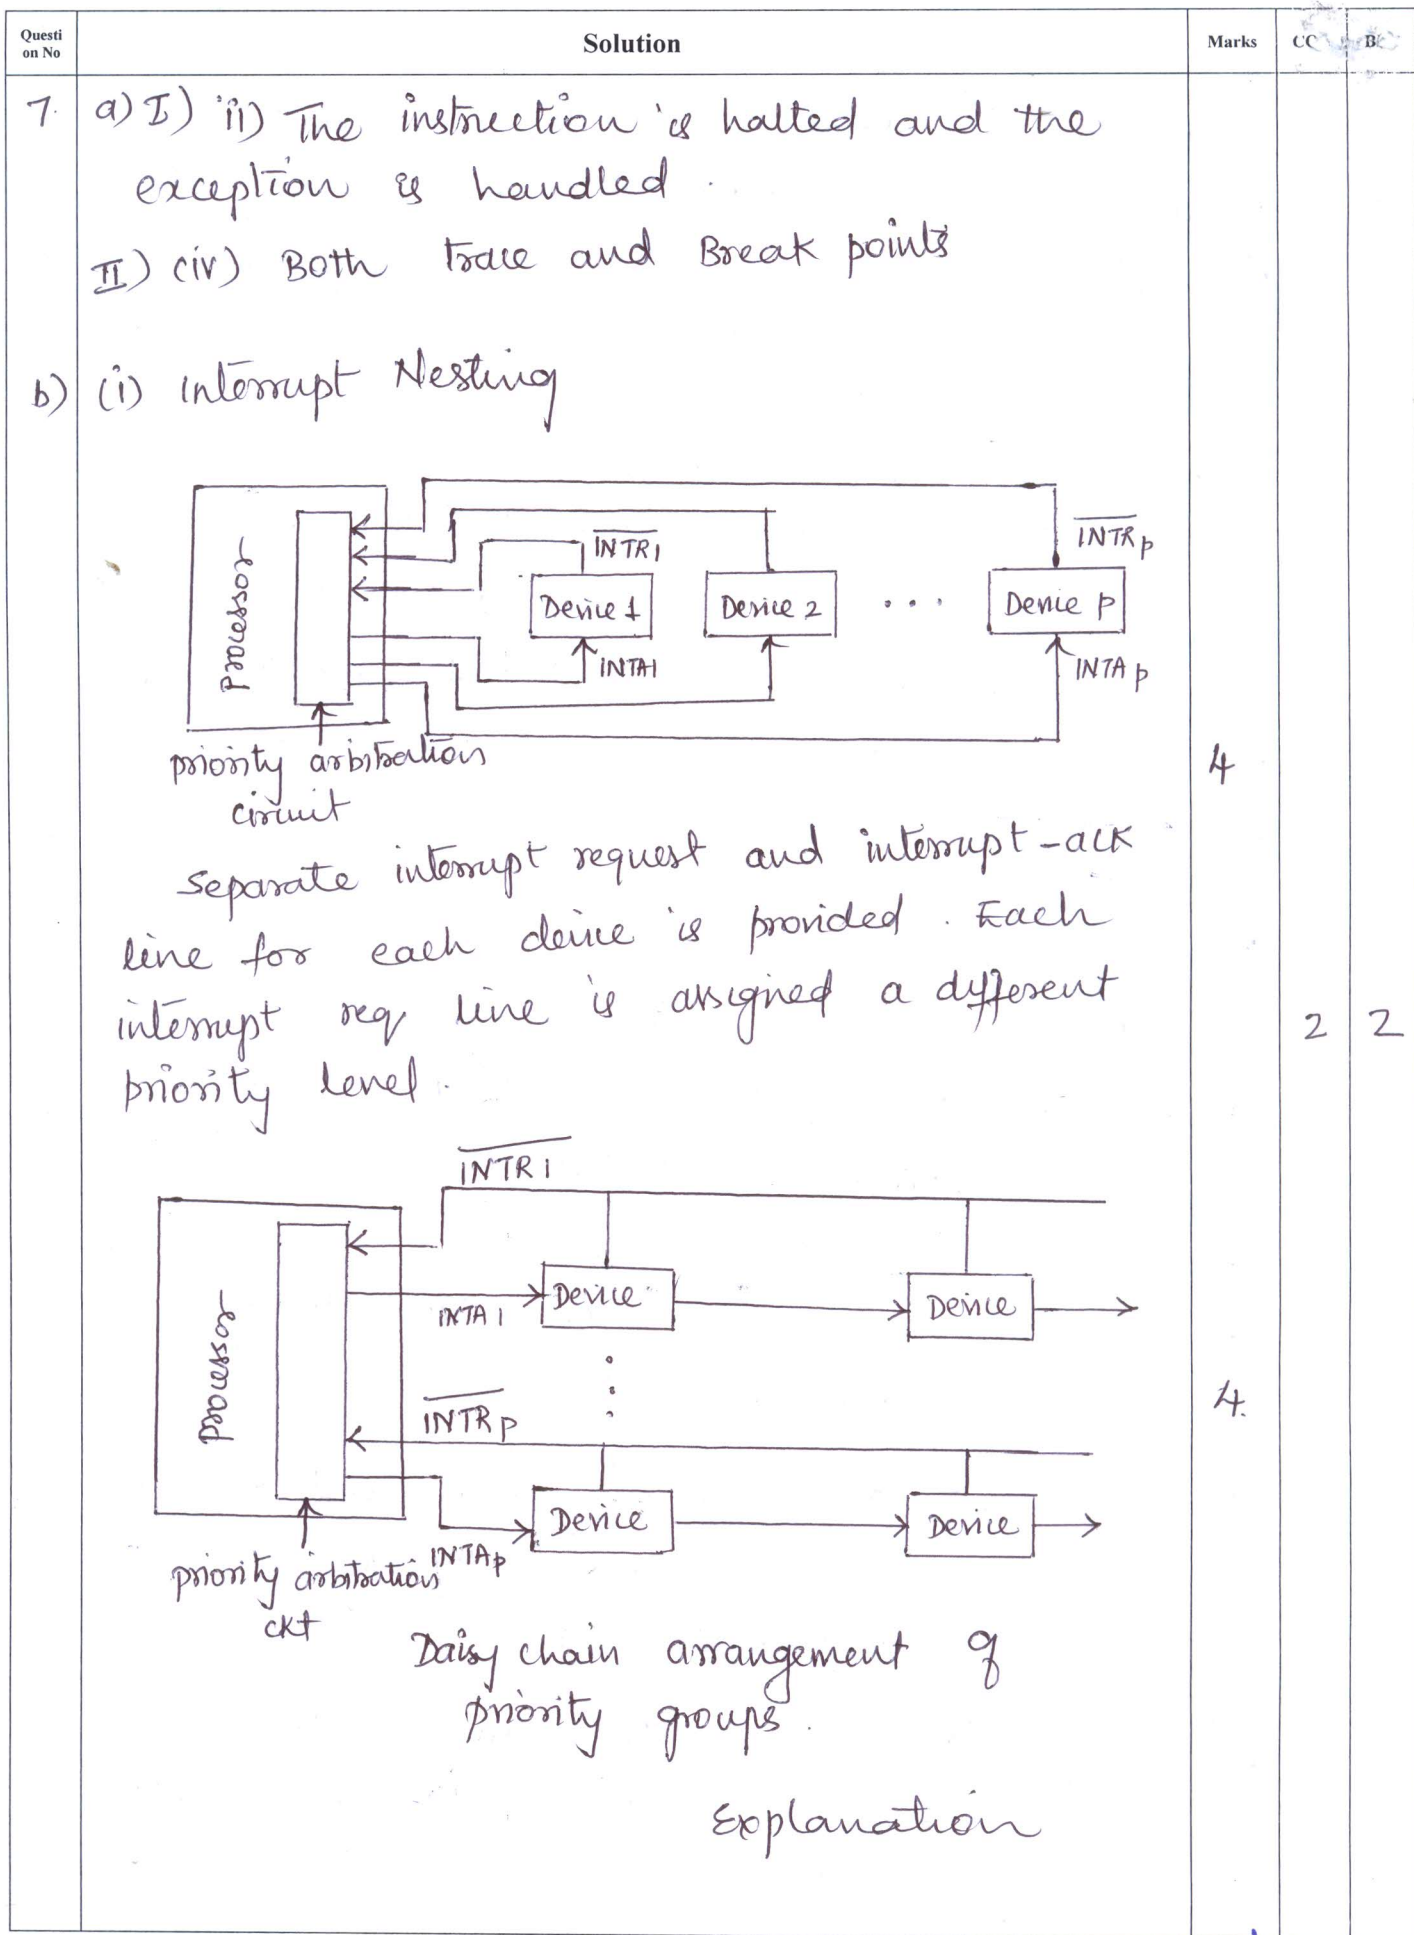 Questi
on No
Solution
Marks
CC
B
7. a) I) ii) The instruction is halted and the
exception is handled.
II) (iv) Both trace and Break points
b) (i) Interrupt Nesting
processor
INTR1
INTRp
Device 1
Device 2
. . .
Device p
INTA1
INTAp
priority arbitration
circuit
4
Separate interrupt request and interrupt-ack
line for each device is provided. Each
interrupt req line is assigned a different
2 2
priority level.
INTR1
processor
INTA1
Device
Device
INTRp
4.
Device
Device
INTAp
priority arbitration
ckt
Daisy chain arrangement of
priority groups.
Explanation